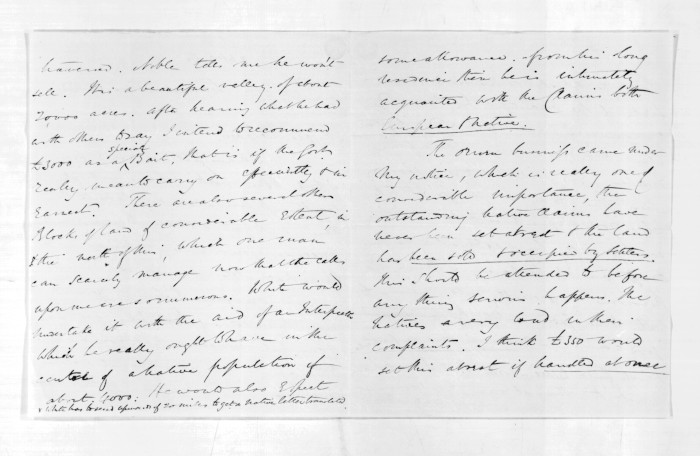 traversed. Noble tells me he won't
sell. It is a beautiful valley of about
7,000 acres. After hearing what he had
with others to say I intend to recommend
£3000 as a special Bait, that is if the Govt
really mean to carry on efficiently & in
Earnest. There are also several other
Blocks of land of considerable Extent, in
& the north of this, which one man
can scarcely manage now that the calls
upon me are so numerous. White would
undertake it with the aid of an Interpreter
which he really ought to have in the
center of a native population of
about 4000: He would also Expect
White has to send upwards of 20 miles to get a native letter translated
some allowance. From his long
residence there he is intimately
acquainted with the Claims both
European & native.
The Oruru business came under
my notice, which is really one of
considerable importance, the
outstanding native claims have
never been set at rest & the land
has been sold & occupied by settlers.
This should be attended to before
any thing serious happens. The
natives are very loud in their
complaints. I think £350 would
set this at rest if handled at once